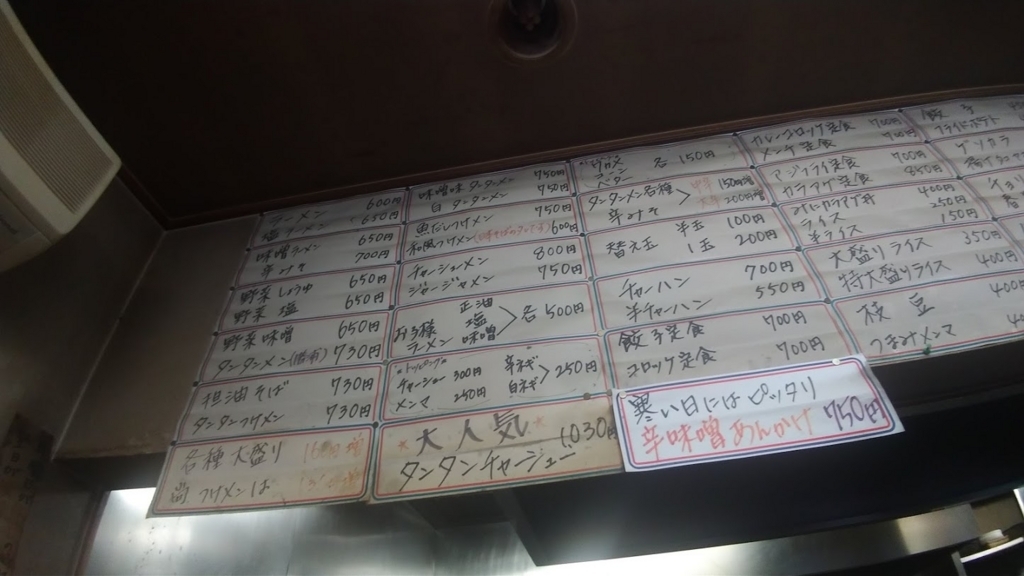 ラーメン 600円
塩ラーメン 650円
味噌ラーメン 650円
辛みそ 700円
野菜しょうゆ 650円
野菜 塩 650円
野菜味噌 650円
タンタンメン 730円
担油そば 730円
タンタンつけメン 730円
各種大盛り
尚つけメンは
味噌味タンタンメン 750円
白タンタンメン 750円
魚だしつけメン 750円
和風つけメン 600円
チャーシューメン 800円
ジャージャーメン 750円
お子様ラーメン 正油 塩 味噌 > 各500円
トッピング
チャーシュー 300円
メンマ 250円
辛ネギ 白ネギ > 250円
大人気
タンタンチャーシュー 1,030円
各 150円
タンタンメン各種
辛みそ
替え玉 半玉 100円
1玉 200円
チャーハン 700円
半チャーハン 550円
餃子定食 700円
コロッケ定食 700円
寒い日にはピッタリ
辛味噌あんかけ 750円
カレーコロッケ定食 700円
メンチ定食 700円
アジフライ定食 700円
カラアゲ定食 850円
400円
ライス 250円
半ライス 150円
大盛りライス 350円
特大盛りライス 400円
枝豆 400円
つまみメンマ
餃子
フライドポテト
ゲソカラ